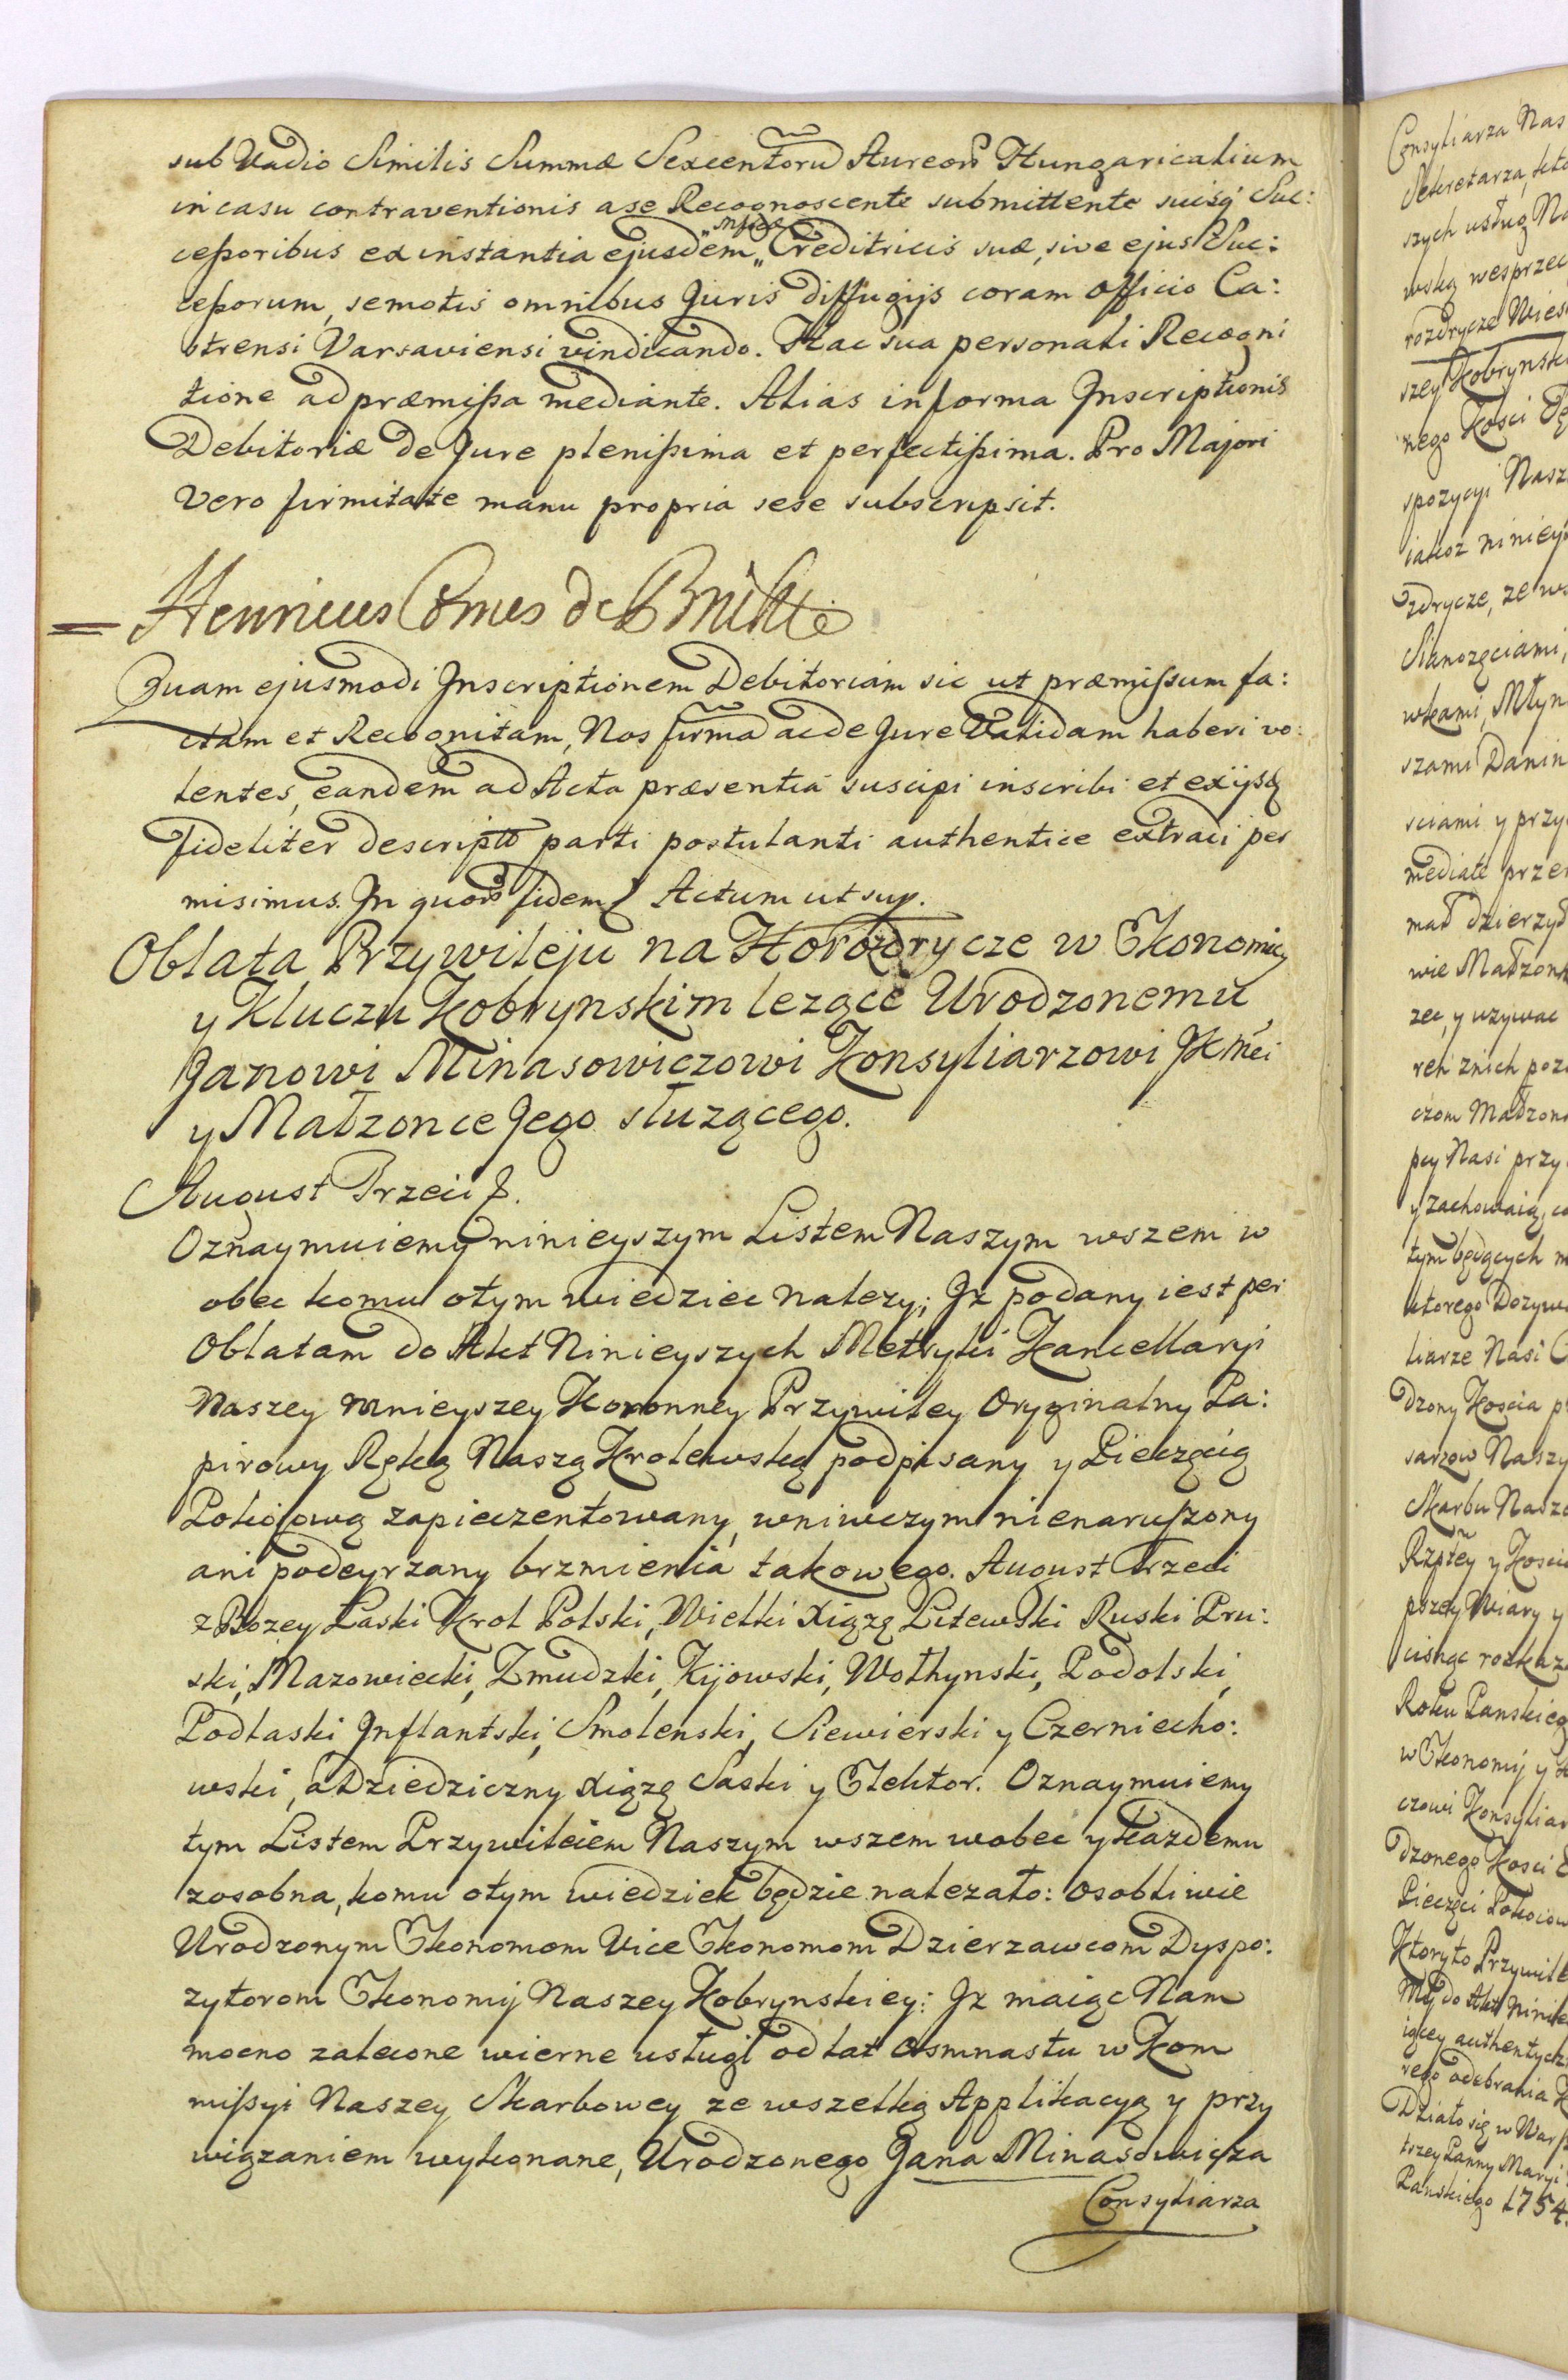 sub Vadio Similis Summæ Sexcentoru Aureorũ Hungaricalium
in casu contraventionis a se Recognoscente submittente suisq Suc:
ceßoribus ex instantia ejusdem „ Creditricis suæ, sive ejus Suc:
ceßorum, semotis omnibus Juris diffugijs coram officio Ca:
strensi Varsaviensi vindicando. Hac sua personali Recogni
tione ad præmißa mediante. Alias in forma Inscriptionis
Debitoriæ de Jure plenißima et perfectißima. Pro Majori
Vero firmitate manu propria sese subscripsit.
Henricus Comes de Brühl
Quam ejusmodi Inscriptionem Debitoriam sic ut præmißum fa:
ctam et Recognitam, Nos firma ac de Jure Validam haberi vo:
lentes, eandem ad Acta præsentia suscipi inscribi et exijsq
fideliter descripto parti postulanti authentice extradi per
misimus. In quorũ fidem Actum ut sup.
Oblata Przywileju na Horozdrycze w Ekonomicy
y Kluczu Kobrynskim lezące Urodzonemu
Janowi Minasowiczowi Konsyliarzowi JKMci
y Małzonce Jego słuzącego.
August Trzeci
Oznaymuiemy ninieyszym Listem Naszym wszem w
obec komu otym wiedziec nalezy; Iz podany iest per
Oblatam do Akt Ninieyszych Metryki Kancellaryi
Naszey mnieyszey Koronney Przywiley Oryginalny Pa:
pirowy Ręką Naszą Krolewską podpisany y Pieczęcią
Pokojową zapieczentowany, wniwczym nienarußony
ani podeyrzany brzmienia takowego. August Trzeci
z Bozey Łaski Krol Polski, Wielki Xiązę Litewski Ruski Pru:
ski, Mazowiecki, Zmudzki, Kijowski, Wołhynski, Podolski,
Podlaski Inflantski, Smolenski, Siewierski y Czerniecho:
wski, a Dziedziczny Xiązę Saski y Elektor. Oznaymuiemy
tym Listem Przywileiem Naszym wszem wobec y kazdemu
zosobna, komu otym wiedziek będzie nalezało: osobliwie
Urodzonym Ekonomom Vice Ekonomom Dzierzawcom Dyspo:
zytorom Ekonomij Naszey Kobrynskiey: Iz maiąc Nam
mocno zalecone wierne usługi od lat Osmnastu w Kom
mißyi Naszey Skarbowey ze wszelką Applikacyą y przy
wiązaniem wykonane, Urodzonego Jana Minasowicza
Consyliarza
Consyliarza Nas
Sekretarza,
szych usług Na
wską wesprzec
rozdrycze Wies
szey Kobrynsk
nego Kosci
spozycyi Nasz
iakoz nini
zdrycze, ze ws
Sianozęciami,
wkami, Młyn
szami Danin
sciami y przy
mediate prze
mał dzierzył
wie Małzonk
zec, y uzywac
reh znich poz
czom Małzon
pcy Nasi przy
y zachowaią, co
tym będących
ktorego Dozyw
liarze Nasi
dzony Koscia p
sarzow Naszy
Skarbu Nasz
Rzptey y Kosci
pszey Wiary y
cisnąc rozkaz
Roku Panskieg
w Ekonomij y
czowi Konsyliar
dzonego Kosci
Pieczęci Pokoiow
Ktoryto Przywile
My do Akt Ninie
iącey authentycz
rego odebrania
Działo się w Warß
trzey Panny Maryi
Panskiego 1754.